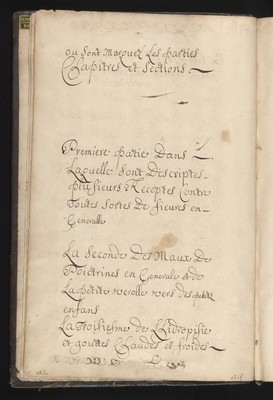 ou sont Marquez Les parties
Chapitres et Sections
Premiere partie Dans
Laquelle sont Descriptes
plusieurs Receptes Contre
Toutes sortes De fieures en
Generalle
La Seconde Des Maux De
Poictrines en Generale et de
La petite verolle vers des petits
enfans
La Troisiesme de L'hidropisie
et gouttes Chaudes et froides